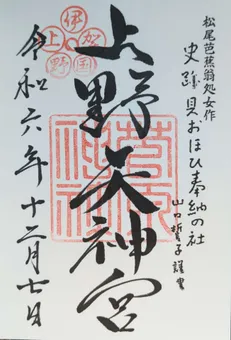 松尾芭蕉翁処女作
史跡 貝おほひ奉納の社
山口誓子謹書
伊賀国
上野
上野天神宮
令和六年十二月七日